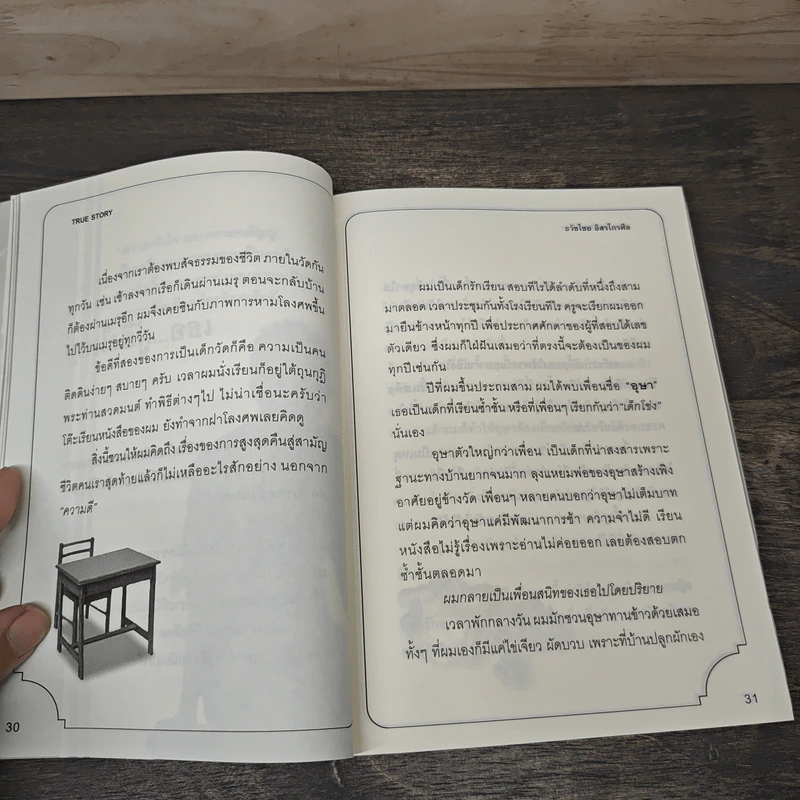 TRUE STORY
เนื่องจากเราต้องพบสัจธรรมของชีวิต ภายในวัดกัน
ทุกวัน เช่น เช้าลงจากเรือก็เดินผ่านเมรุ ตอนจะกลับบ้าน
ก็ต้องผ่านเมรุอีก ผมจึงเคยชินกับภาพการหามโลงศพขึ้น
ไปไว้บนเมรุอยู่ทุกวี่วัน
ข้อดีที่สองของการเป็นเด็กวัดก็คือ ความเป็นคน
ติดดินง่ายๆ สบายๆ ครับ เวลาผมนั่งเรียนก็อยู่ใต้ถุนกุฏิ
พระท่านสวดมนต์ ทำพิธีต่างๆไป ไม่น่าเชื่อนะครับว่า
โต๊ะเรียนหนังสือของผม ยังทำจากฝาโลงศพเลยคิดดู
สิ่งนี้ชวนให้ผมคิดถึง เรื่องของการสูงสุดคืนสู่สามัญ
ชีวิตคนเราสุดท้ายแล้วก็ไม่เหลืออะไรสักอย่าง นอกจาก
"ความดี"
30
ธวัชไชย อิสรไกรศีล
ผมเป็นเด็กรักเรียน สอบทีไรได้ลำดับที่หนึ่งถึงสาม
มาตลอด เวลาประชุมกันทั้งโรงเรียนทีไร ครูจะเรียกผมออก
มายืนข้างหน้าทุกปี เพื่อประกาศศักดาของผู้ที่สอบได้เลข
ตัวเดียว ซึ่งผมก็ใฝ่ฝันเสมอว่าที่ตรงนี้จะต้องเป็นของผม
ทุกปีเช่นกัน
ปีที่ผมขึ้นประถมสาม ผมได้พบเพื่อนชื่อ "อุษา"
เธอเป็นเด็กที่เรียนซ้ำชั้น หรือที่เพื่อนๆ เรียกกันว่า"เด็กโข่ง"
นั่นเอง
อุษาตัวใหญ่กว่าเพื่อน เป็นเด็กที่น่าสงสารเพราะ
ฐานะทางบ้านยากจนมาก ลุงแหยมพ่อของอุษาสร้างเพิง
อาศัยอยู่ข้างวัด เพื่อนๆ หลายคนบอกว่าอุษาไม่เต็มบาท
แต่ผมคิดว่าอุษาแค่มีพัฒนาการช้า ความจำไม่ดี เรียน
หนังสือไม่รู้เรื่องเพราะอ่านไม่ค่อยออก เลยต้องสอบตก
ซ้ำชั้นตลอดมา
ผมกลายเป็นเพื่อนสนิทของเธอไปโดยปริยาย
เวลาพักกลางวัน ผมมักชวนอุษาทานข้าวด้วยเสมอ
ทั้งๆ ที่ผมเองก็มีแค่ไข่เจียว ผัดบวบ เพราะที่บ้านปลูกผักเอง
31